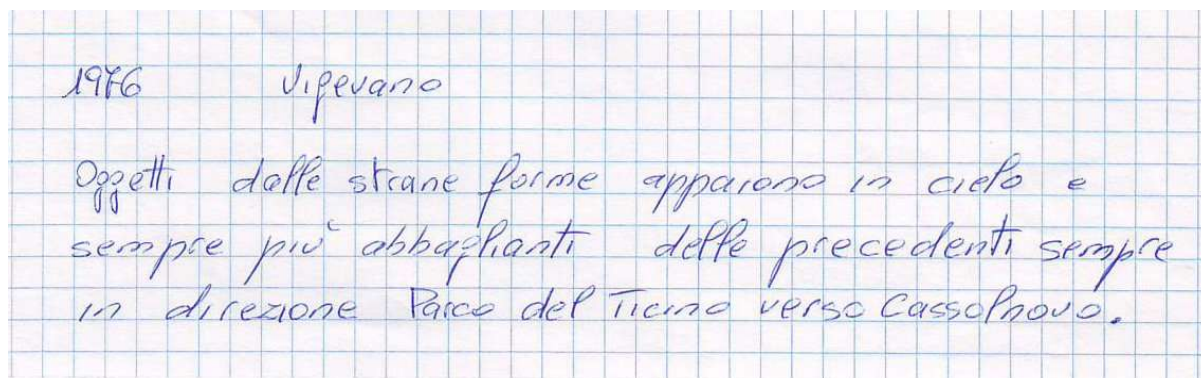 1976 Vigevano
Oggetti dalle strane forme appaiono in cielo e
sempre più abbaglianti delle precedenti sempre
in direzione Parco del Ticino verso Cassolnovo.